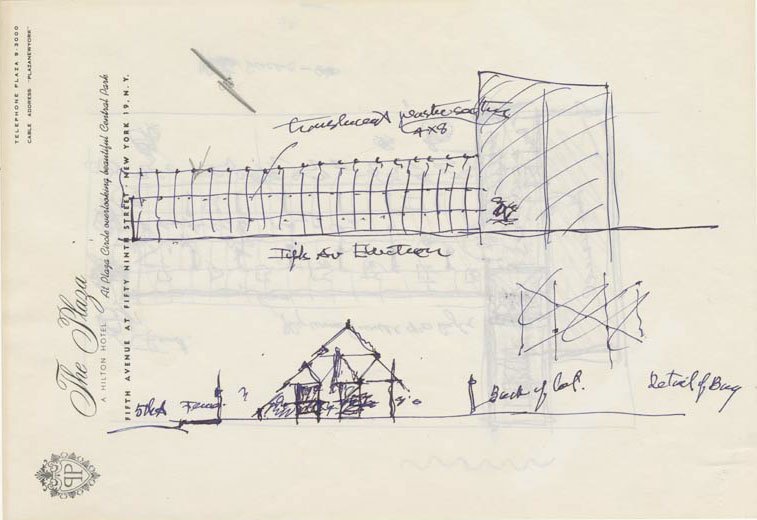 TELEPHONE PLAZA 9-3000
CABLE ADDRESS "PLAZANEWYORK"
The Plaza
At Plaza Circle overlooking beautiful Central Park
A HILTON HOTEL
FIFTH AVENUE AT FIFTY NINTH STREET · NEW YORK 19, N. Y.
PP
translucent plastic
4x8
Av Elevation
5th A
Back of
Detail of Bay